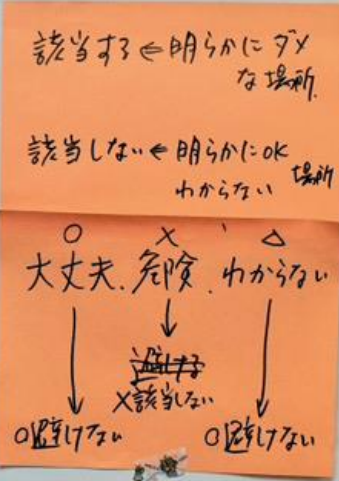 該当する ← 明らかに ダメ
な 場所.
該当しない ← 明らかに OK
わからない 場所
○ × 、 △
大丈夫、危険、わからない
×該当しない
○避けない ○避けない